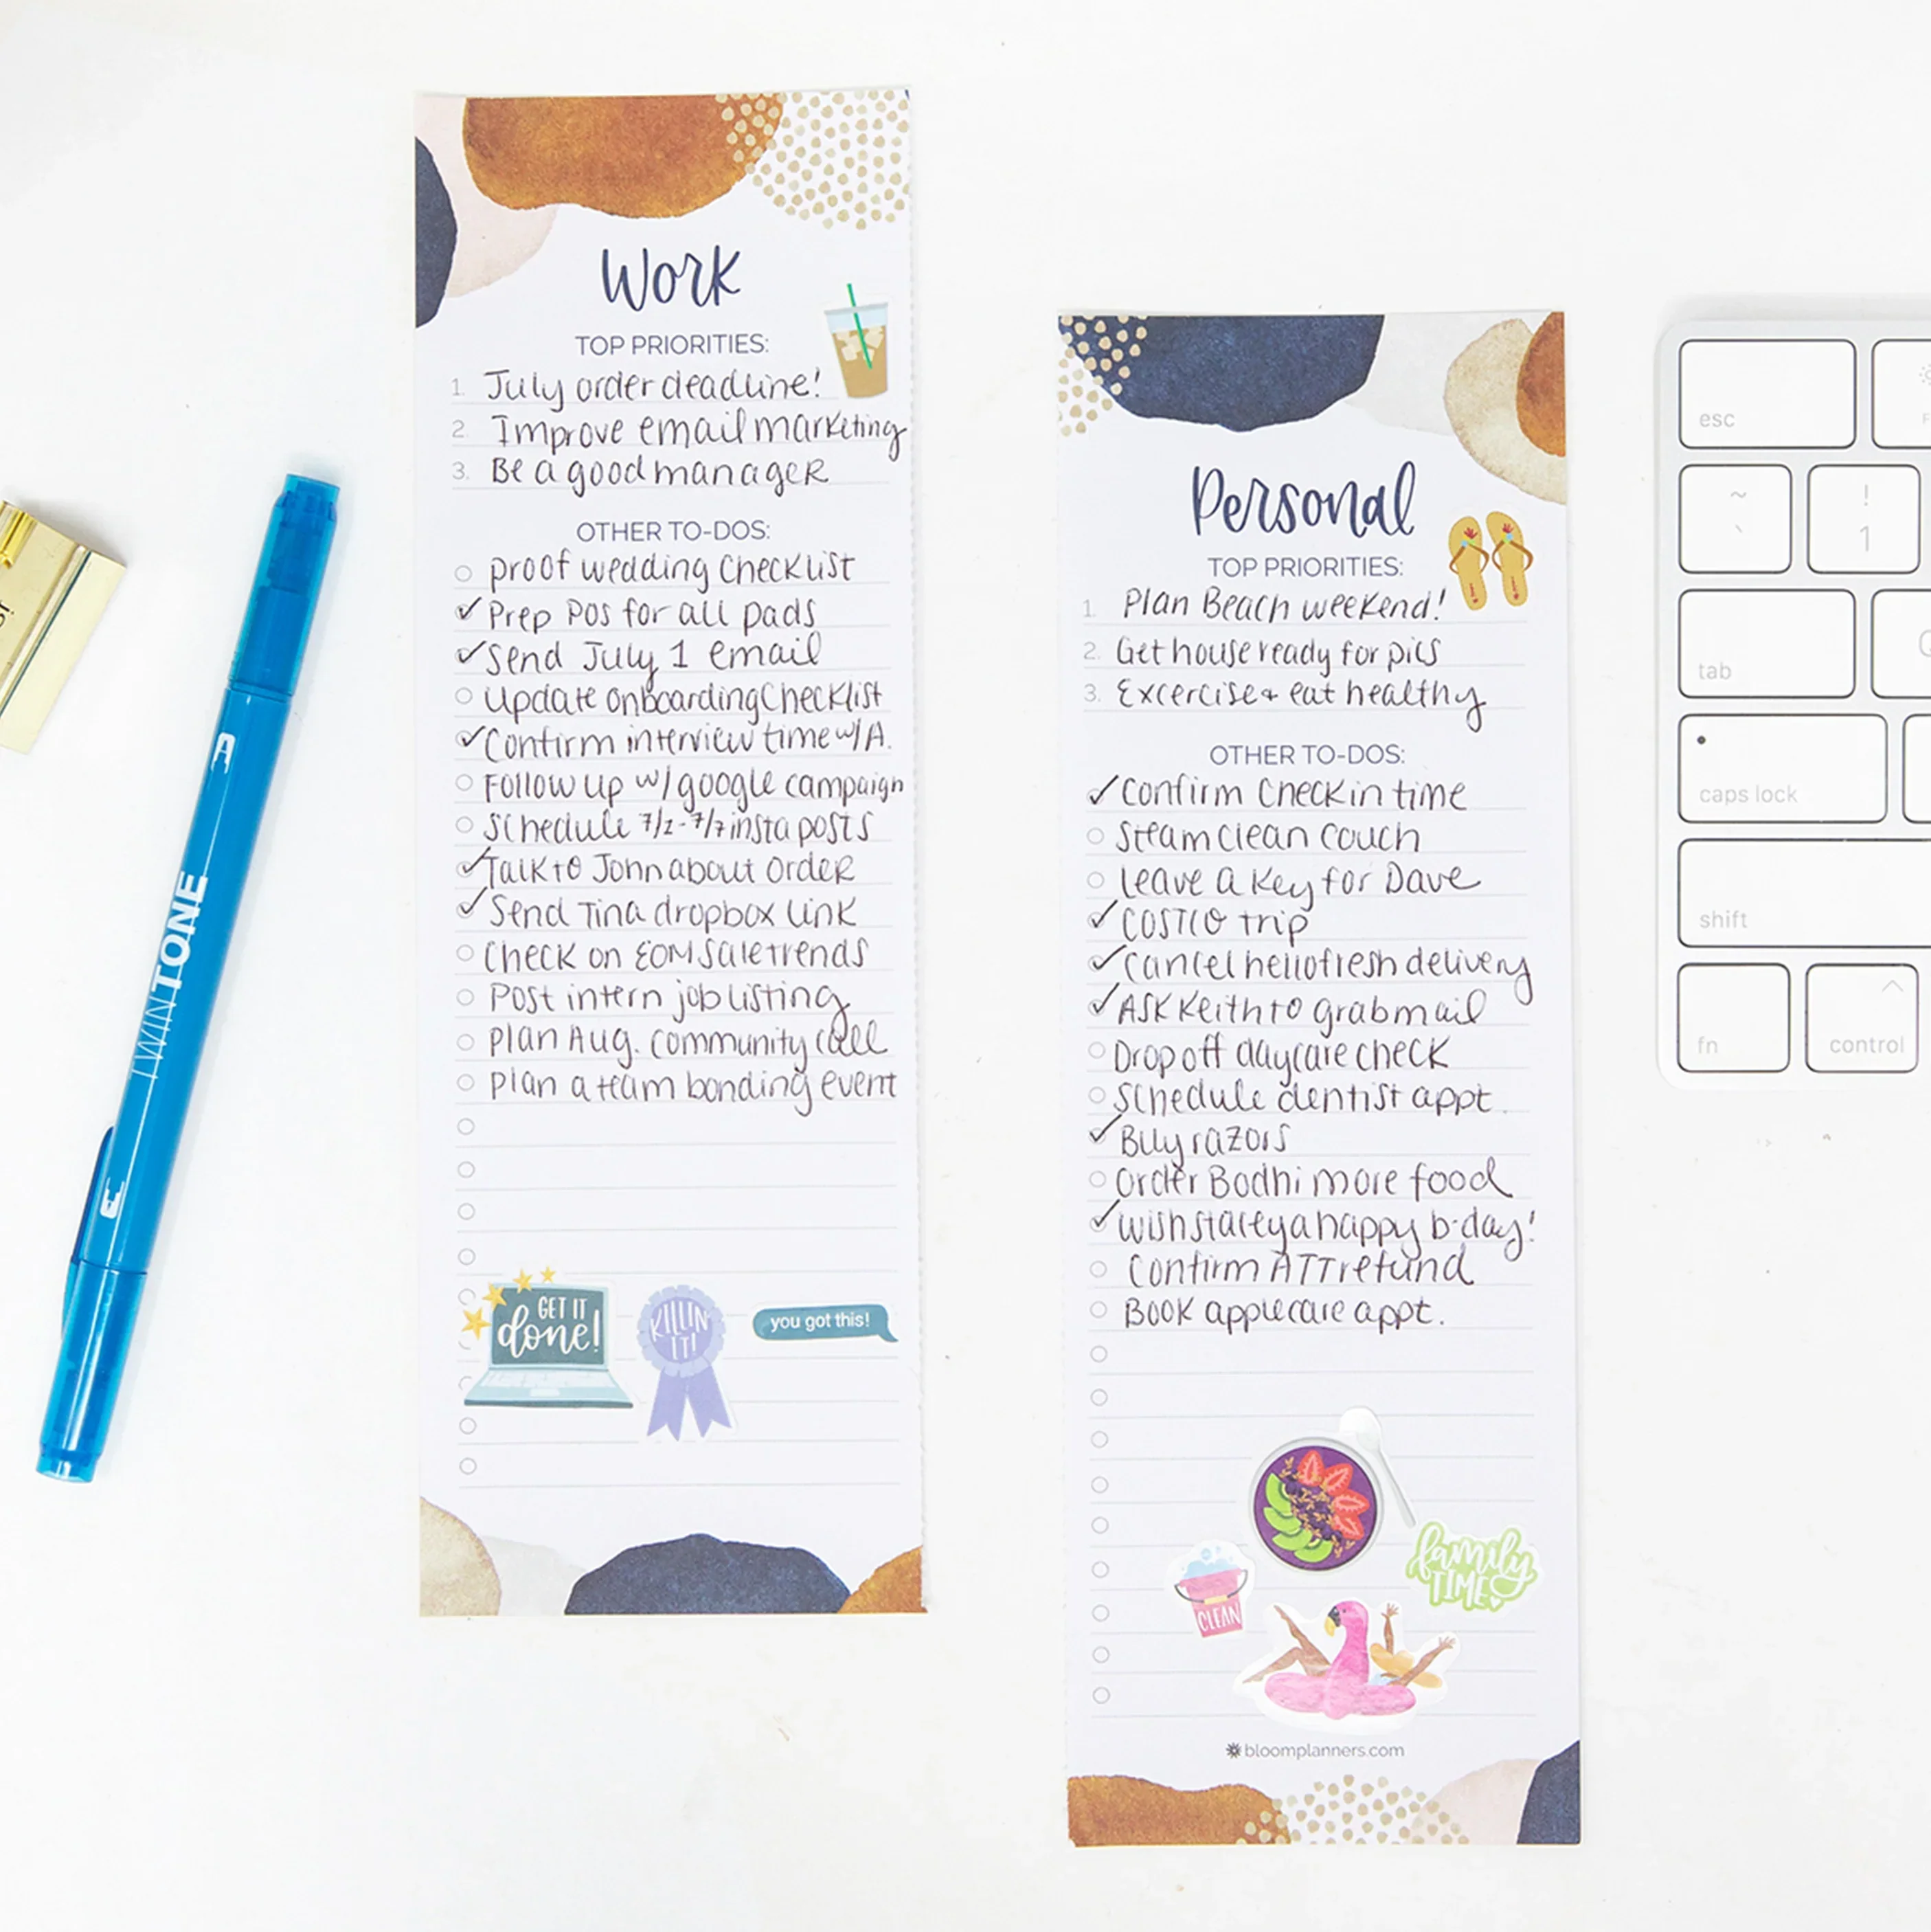 Work
TOP PRIORITIES:
1. July order deadline!
2. Improve email marketing
3. Be a good manager
OTHER TO-DOS:
proof wedding checklist
Prep POs for all pads
Send July 1 email
Update onboarding checklist
Confirm interview time w/ A.
Follow up w/ google campaign
Schedule 7/2-7/7 insta posts
Talk to John about order
Send Tina dropbox link
Check on EOM sale trends
Post intern job listing
Plan Aug. community call
Plan a team bonding event
GET IT
done!
KILLIN'
IT!
you got this!
Personal
TOP PRIORITIES:
1. Plan Beach weekend!
2. Get house ready for pics
3. Excercise + eat healthy
OTHER TO-DOS:
Confirm check in time
Steam clean couch
leave a key for Dave
COSTCO trip
Cancel hellofresh delivery
Ask Keith to grab mail
Drop off daycare check
Schedule dentist appt.
Buy razors
Order Bodhi more food
wish stacey a happy b-day!
Confirm ATT refund
Book applecare appt.
family
TIME
CLEAN
bloomplanners.com
A
TWINTONE
esc
F
~
`
!
1
tab
Q
caps lock
shift
fn
control